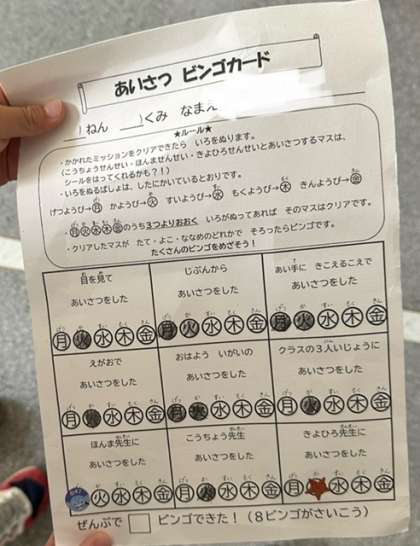 あいさつ ビンゴカード
)ねん ___)くみ なまえ
★ルール★
・かかれたミッションをクリアできたら いろをぬります。
(こうちょうせんせい・ほんませんせい・きよひろせんせいとあいさつするマスは、
シールをはってくれるかも?!)
・いろをぬるばしょは、したにかいているとおりです。
げつようび→月 かようび→火 すいようび→水 もくようび→木 きんようび→金
・月火水木金のうち3つよりおおく いろがぬってあれば そのマスはクリアです。
・クリアしたマスが たて・よこ・ななめのどれかで そろったらビンゴです。
たくさんのビンゴをめざそう!
目を見て
あいさつをした
月火水木金
じぶんから
あいさつをした
月火水木金
あい手に きこえるこえで
あいさつをした
月火水木金
えがおで
あいさつをした
月火水木金
おはよう いがいの
あいさつをした
月火水木金
クラスの3人いじょうに
あいさつをした
月火水木金
ほんま先生に
あいさつをした
火水木金
こうちょう先生
あいさつをした
月火水木金
きよひろ先生に
あいさつをした
月 水木金
ぜんぶで □ ビンゴできた!(8ビンゴがさいこう)